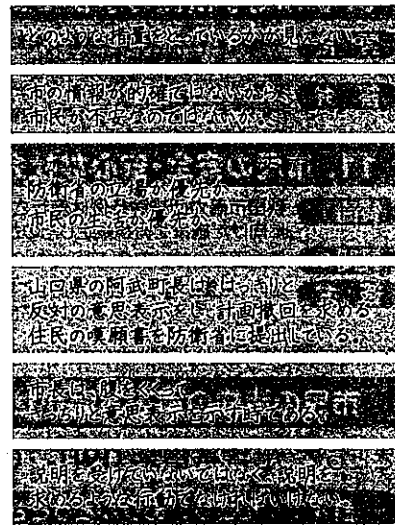 どのような措置をとっているかが見えない。
市の情報が的確ではないから、
市民が不安なのではないか。
防衛省の立場が優先か
市民の生命が優先か
山口県の阿武町長は、はっきりと
反対の意思表示をし、計画撤回を求める
住民の嘆願書を防衛省に提出している。
市長は腹をくくって
きっちりと意思表示を示す時である。
説明を受けていないではなく、説明を
求めるような行動でなければいけない。